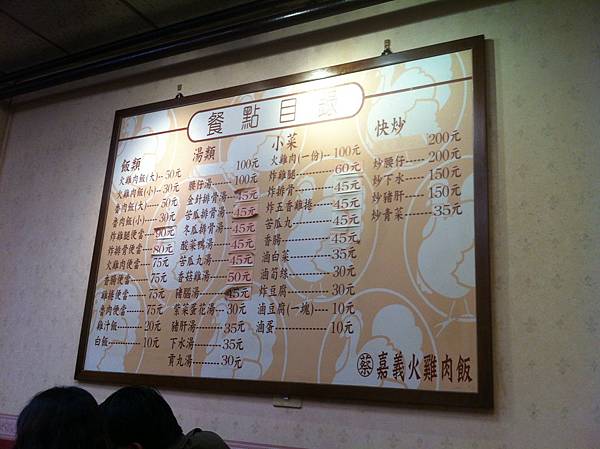 餐點目錄
飯類
火雞肉飯(大)--50元
火雞肉飯(小)--30元
魯肉飯(大)----50元
魯肉飯(小)----30元
炸雞腿便當---90元
炸排骨便當---80元
火雞肉便當---75元
香腸便當-----75元
雞捲便當-----75元
魯肉便當-----75元
雞汁飯-------20元
白飯---------10元
湯類
100元
腰仔湯------100元
金針排骨湯--45元
苦瓜排骨湯--45元
冬瓜排骨湯--45元
酸菜鴨湯----45元
苦瓜丸湯----45元
香菇雞湯----50元
豬腦湯------45元
紫菜蛋花湯--30元
豬肝湯------35元
下水湯------35元
貢丸湯------30元
小菜
火雞肉(一份)--100元
炸雞腿--------60元
炸排骨--------45元
炸五香雞捲----45元
苦瓜丸--------45元
香腸----------45元
滷白菜--------35元
滷筍絲--------30元
炸豆腐--------30元
滷豆腐(一塊)--10元
滷蛋----------10元
快炒
200元
炒腰仔------200元
炒下水------150元
炒豬肝------150元
炒青菜------35元
蔡 嘉義火雞肉飯